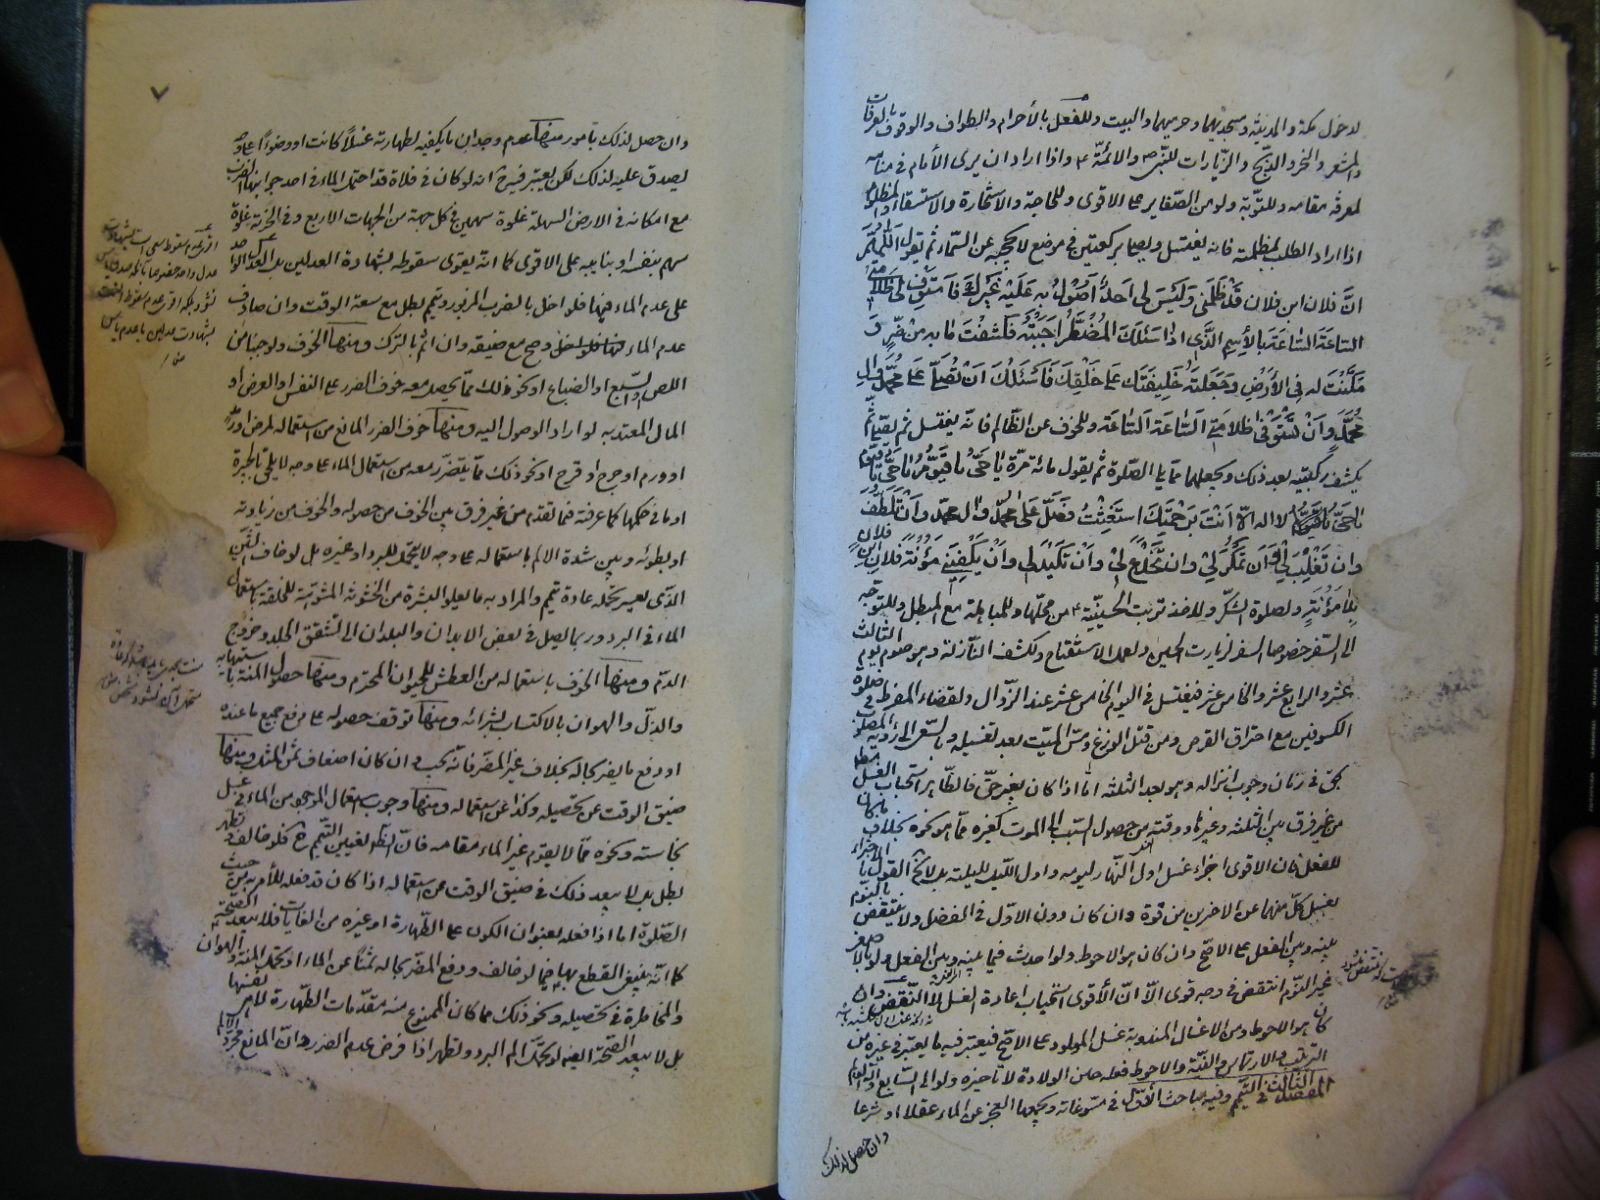 لدخول مكة والمدينة ومسجديهما وحرميهما والبيت وللفعل بالأحرام والطواف والوقوف بالعرفات
والمشعر والنحر والذبح والزيارات للنبي ص والائمة ع واذا اراد ان يرى الأمام في منامه
لمعرفة مقامه وللتوبة ولو من الصغاير على الاقوى وللحاجة والاستخارة والاستسقاء والمظلوم
اذا اراد الطلب لمظلمته فانه يغتسل ويصلى ركعتين في موضع لا يحجبه عن السماء ثم يقول اللهم
ان فلان ابن فلان قد ظلمني وليس لي احد اصول به عليه غيرك فاستوف لي ظلامتي
الساعة الساعة بالأسم الذي اذا سئلك المضطر اجبته فكشفت ما به من ضر و
مكنت له في الأرض وجعلته خليفتك على خلقك فاسئلك ان تصلي على محمد وال
محمد وان تستوفي ظلامتي الساعة الساعة وللخوف عن الظالم فانه يغتسل ثم يصلي ثم
يكشف ركبتيه بعد ذلك ويجعلهما مما يلي الصلوة ثم يقول مائة مرة يا حي يا قيوم يا حي يا قيوم
يا حي لا اله الا انت برحمتك استغثت فصل على محمد وال محمد وان تلطف
وان تغلب لي وان تمكر لي وان تخدع لي وان تكيد لي وان تكفيني مؤنة فلان ابن فلان
بلا مؤنة ولصلوة الشكر ولاخذ تربت الحسينية ع من محلها وللمباهلة مع المبطل وللتوجه
الى السفر خصوصا السفر لزيارت الحسين ولعمل الاستفتاح ولكشف النازلة وهو صوم يوم الثالث
عشر والرابع عشر والخامس عشر فيغتسل في اليوم الخامس عشر عند الزوال ولقضاء المفرط في صلوة
الكسوفين مع احتراق القرص ومن قتل الوزغ ومس الميت بعد تغسيله والسعي الى رؤية المصلوب
بحق في زمان وجوب انزاله وهو بعد الثلثة اما اذا كان بغير حق فالظاهر استحباب الغسل
من غير فرق بين الثلثة وغيرها ووقته من حصول السبب الى الموت كغيره مما هو نحوه بخلاف
للفعل فان الاقوى اجزاء غسل اول النهار ليومه واول الليل لليلته بل لا يخ القول باجزاء
بغسل كل منهما عن الاخر من قوة وان كان دون الاول في الفضل ولا ينتقض بالنوم
بينه وبين الفعل على الاصح وان كان هو الاحوط ولو احدث فيما بينه وبين الفعل ولو بالاصغر
غير النوم انتقض في وجه قوى الا ان الأقوى استحباب اعادة الغسل لا النقض وان
كان هو الاحوط ومن الاغسال المندوبة غسل المولود على الاصح فيعتبر فيه ما يعتبر في غيره من
الترتيب والارتماس والنية والاحوط فعله حين الولادة لا تاخيره ولو الى السابع
المقصد الثالث في التيمم وفيه مباحث الأول في مسوغاته ويجمعها العجز عن الماء عقلا او شرعا
وان حصل لذلك
٧
وان حصل لذلك بامور منها عدم وجدان ما يكفيه لطهارته غسلا كانت او وضوءا
يصدق عليه لذلك لكن يعتبر فيه انه لو كان في فلاة قد احتمل الماء في احد جوانبها الضرب
مع امكانه في الارض السهلة غلوة سهمين في كل جهة من الجهات الاربع وفي الحزنة غلوة
سهم بنفسه او بنايبه على الاقوى كما انه يقوى سقوطه بشهادة العدلين بل العدل الواحد
على عدم الماء فيها فلو اخل بالضرب المزبور وتيمم بطل مع سعة الوقت وان صادف
عدم الماء وصح مع ضيقه وان اثم بالترك ومنها الخوف ولو جبنا من
اللص او السبع او الضياع او نحو ذلك مما يحصل معه خوف الضرر على النفس او العرض او
المال المعتد به لو اراد الوصول اليه ومنها خوف الضرر المانع من استعماله لمرض او رمد
او ورم او جرح او قرح او نحو ذلك مما يتضرر معه من استعمال الماء على وجه لا يلحق بالجبيرة
او ما في حكمها كما عرفته فيما تقدم من غير فرق بين الخوف من حصوله والخوف من زيادته
او بطؤه وبين شدة الالم باستعماله على وجه لا يتحمل للبرد او غيره بل لو خاف الشين
الذي يعسر تحمله عادة تيمم والمراد به ما يعلو البشرة من الخشونة المشوهة للخلقة باستعمال
الماء في البرد وربما يصل في بعض الابدان والبلدان الى تشقق الجلد وخروج
الدم ومنها الخوف باستعماله من العطش للحيوان المحترم ومنها حصول المنة باستيهابه
والذل والهوان بالاكتساب لشرائه ومنها توقف حصوله على دفع جميع ما عنده
او دفع ما يضر بحاله بخلاف غير المضر فانه يجب وان كان اضعاف ثمن المثل ومنها
ضيق الوقت عن تحصيله وكذا عن استعماله ومنها وجوب استعمال الموجود من الماء في غسل
نجاسته ونحوه مما لا يقوم غير الماء مقامه فان الظ تعيين التيمم ح فلو خالف وتطهر
بطل بل لا يبعد ذلك في ضيق الوقت من استعماله اذا كان قد فعله للأمر به من حيث
الصلوة اما اذا فعله بعنوان الكون على الطهارة او غيره من الغايات فلا يبعد الصحة
كما انه ينبغي القطع بها فيما لو خالف ودفع المضر بحاله ثمنا عن الماء او تحمل المنة والهوان
والمخاطرة في تحصيله ونحو ذلك مما كان الممنوع منه مقدمات الطهارة لا هي نفسها
بل لا يبعد الصحة ايضا لو تحمل الم البرد وتطهر اذا فرض عدم الضرر وان المانع مجرد الالم